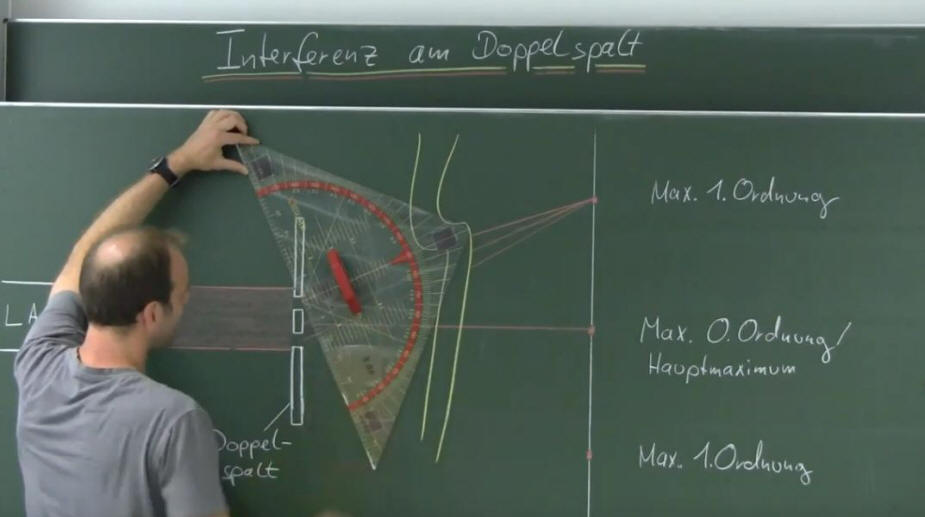 Interferenz am Doppelspalt
Max. 1. Ordnung
LA
Max. 0. Ordnung/
Hauptmaximum
Doppel-
spalt
Max. 1. Ordnung